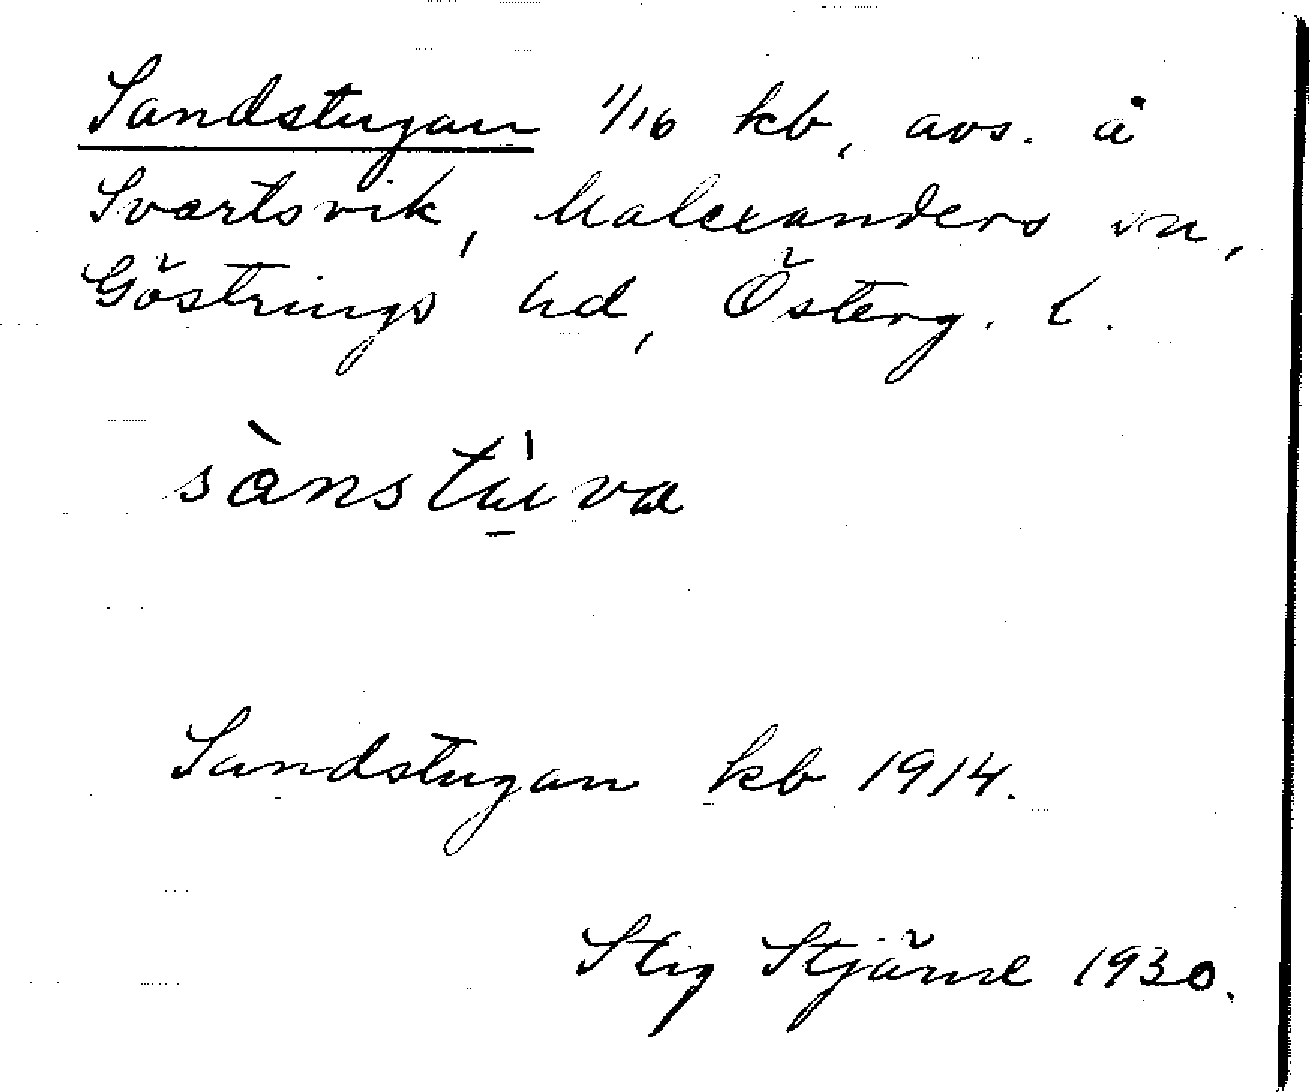 Sandstugan 1/16 kb, avs. å
Svartsvik, Malexanders sn,
Göstrings hd, Österg. l.
sànstu̠'va
Sandstugan kb 1914.
Stig Stjärne 1930.